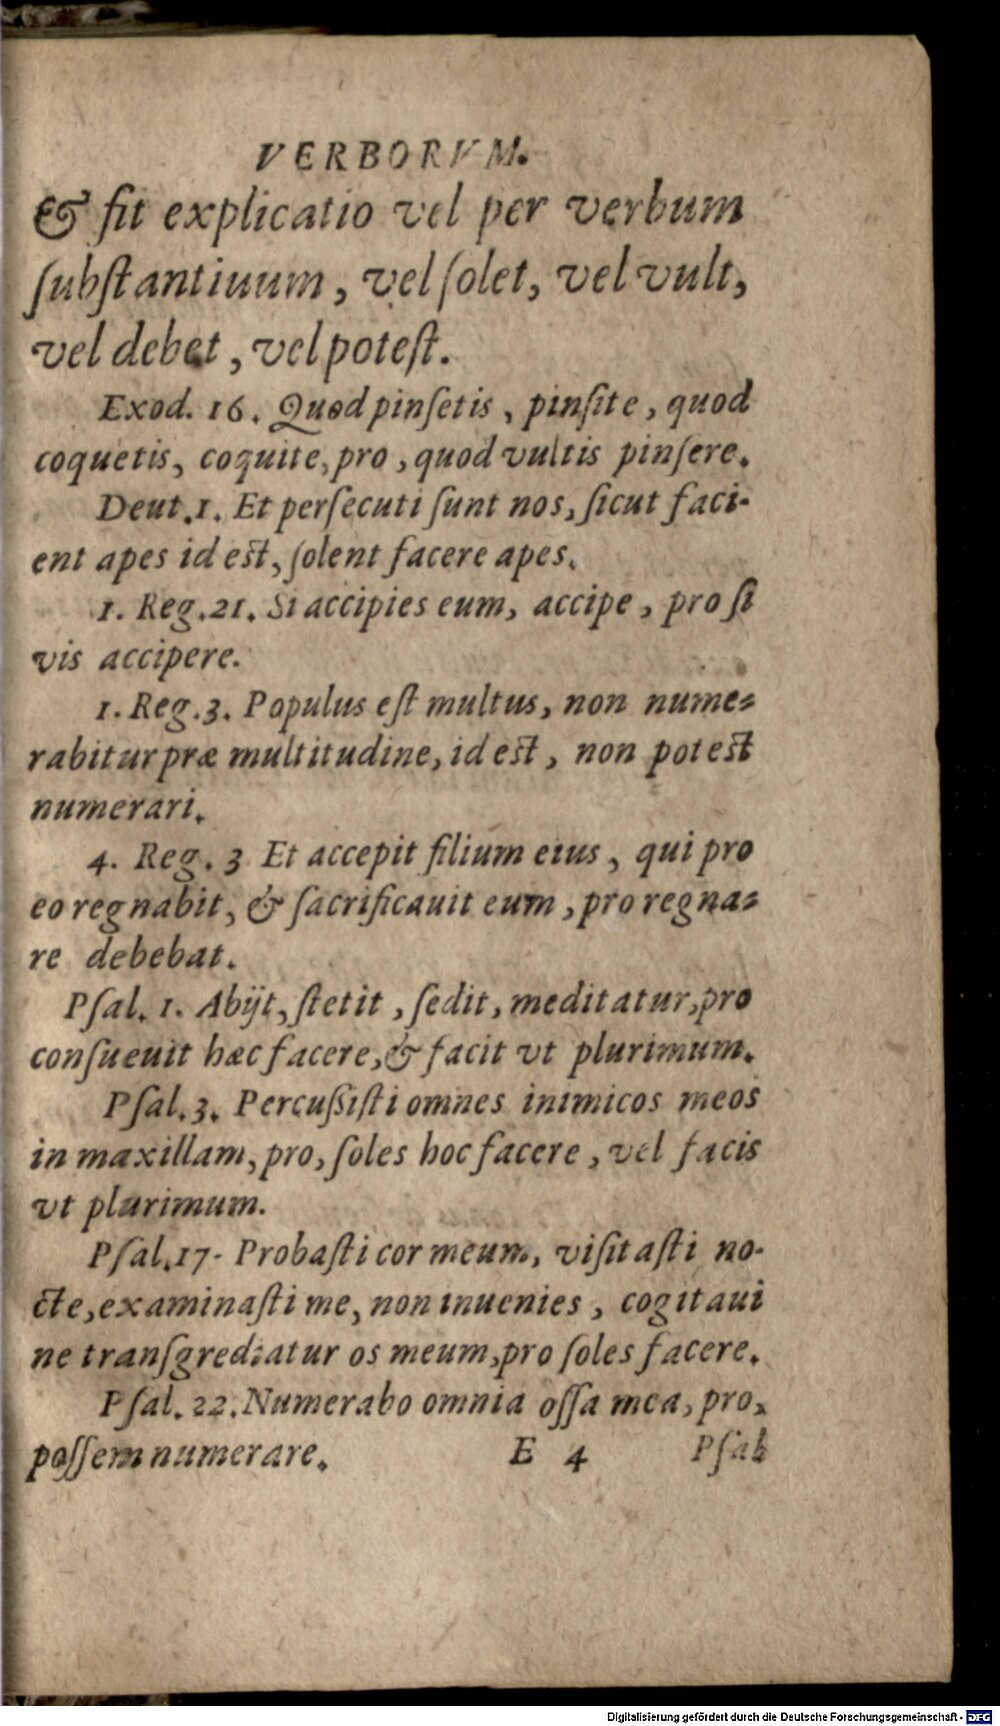 VERBORVM.
& fit explicatio vel per verbum
ſubſtantiuum, vel ſolet, vel vult,
vel debet, vel poteſt.
Exod. 16. Quod pinſetis, pinſite, quod
coquetis, coquite, pro, quod vultis pinſere.
Deut. 1. Et perſecuti ſunt nos, ſicut faci-
ent apes id eſt, ſolent facere apes.
1. Reg. 21. Si accipies eum, accipe, pro ſi
vis accipere.
1. Reg. 3. Populus eſt multus, non nume-
rabitur præ multitudine, id eſt, non poteſt
numerari.
4. Reg. 3 Et accepit filium eius, qui pro
eo regnabit, & ſacrificauit eum, pro regna-
re debebat.
Pſal. 1. Abijt, ſtetit, ſedit, meditatur, pro
conſueuit hæc facere, & facit vt plurimum.
Pſal. 3. Percuſsiſti omnes inimicos meos
in maxillam, pro, ſoles hoc facere, vel facis
vt plurimum.
Pſal. 17- Probaſti cor meum, viſitaſti no-
cte, examinaſti me, non inuenies, cogitaui
ne tranſgrediatur os meum, pro ſoles facere.
Pſal. 22. Numerabo omnia oſſa mea, pro,
poſſem numerare. E 4 Pſal
Digitalisierung gefördert durch die Deutsche Forschungsgemeinschaft - DFG